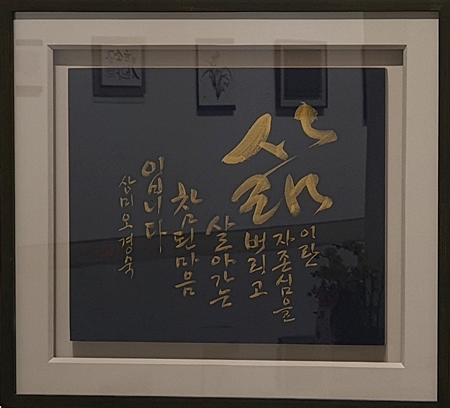 삶
이란
자존심을
버리고
살아가는
참된마음
입니다
상미오경숙